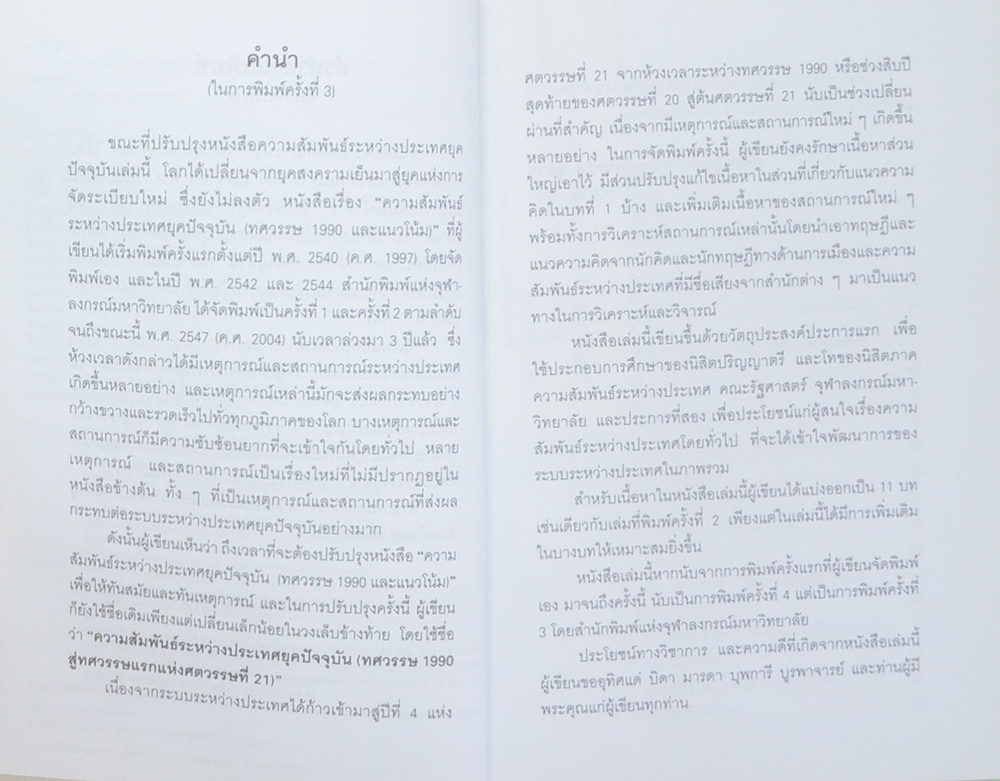 คำนำ
(ในการพิมพ์ครั้งที่ 3)
ขณะที่ปรับปรุงหนังสือความสัมพันธ์ระหว่างประเทศยุค
ปัจจุบันเล่มนี้ โลกได้เปลี่ยนจากยุคสงครามเย็นมาสู่ยุคแห่งการ
จัดระเบียบใหม่ ซึ่งยังไม่ลงตัว หนังสือเรื่อง “ความสัมพันธ์
ระหว่างประเทศยุคปัจจุบัน (ทศวรรษ 1990 และแนวโน้ม)” ที่ผู้
เขียนได้เริ่มพิมพ์ครั้งแรกตั้งแต่ปี พ.ศ. 2540 (ค.ศ. 1997) โดยจัด
พิมพ์เอง และในปี พ.ศ. 2542 และ 2544 สำนักพิมพ์แห่งจุฬา-
ลงกรณ์มหาวิทยาลัย ได้จัดพิมพ์เป็นครั้งที่ 1 และครั้งที่ 2 ตามลำดับ
จนถึงขณะนี้ พ.ศ. 2547 (ค.ศ. 2004) นับเวลาล่วงมา 3 ปีแล้ว ซึ่ง
ห้วงเวลาดังกล่าวได้มีเหตุการณ์และสถานการณ์ระหว่างประเทศ
เกิดขึ้นหลายอย่าง และเหตุการณ์เหล่านี้มักจะส่งผลกระทบอย่าง
กว้างขวางและรวดเร็วไปทั่วทุกภูมิภาคของโลก บางเหตุการณ์และ
สถานการณ์ก็มีความซับซ้อนยากที่จะเข้าใจกันโดยทั่วไป หลาย
เหตุการณ์ และสถานการณ์เป็นเรื่องใหม่ที่ไม่มีปรากฏอยู่ใน
หนังสือข้างต้น ทั้ง ๆ ที่เป็นเหตุการณ์และสถานการณ์ที่ส่งผล
กระทบต่อระบบระหว่างประเทศยุคปัจจุบันอย่างมาก
ดังนั้นผู้เขียนเห็นว่า ถึงเวลาที่จะต้องปรับปรุงหนังสือ “ความ
สัมพันธ์ระหว่างประเทศยุคปัจจุบัน (ทศวรรษ 1990 และแนวโน้ม)”
เพื่อให้ทันสมัยและทันเหตุการณ์ และในการปรับปรุงครั้งนี้ ผู้เขียน
ก็ยังใช้ชื่อเดิมเพียงแต่เปลี่ยนเล็กน้อยในวงเล็บข้างท้าย โดยใช้ชื่อ
ว่า “ความสัมพันธ์ระหว่างประเทศยุคปัจจุบัน (ทศวรรษ 1990
สู่ทศวรรษแรกแห่งศตวรรษที่ 21)”
เนื่องจากระบบระหว่างประเทศได้ก้าวเข้ามาสู่ปีที่ 4 แห่ง
ศตวรรษที่ 21 จากห้วงเวลาระหว่างทศวรรษ 1990 หรือช่วงสิบปี
สุดท้ายของศตวรรษที่ 20 สู่ต้นศตวรรษที่ 21 นับเป็นช่วงเปลี่ยน
ผ่านที่สำคัญ เนื่องจากมีเหตุการณ์และสถานการณ์ใหม่ ๆ เกิดขึ้น
หลายอย่าง ในการจัดพิมพ์ครั้งนี้ ผู้เขียนยังคงรักษาเนื้อหาส่วน
ใหญ่เอาไว้ มีส่วนปรับปรุงแก้ไขเนื้อหาในส่วนที่เกี่ยวกับแนวความ
คิดในบทที่ 1 บ้าง และเพิ่มเติมเนื้อหาของสถานการณ์ใหม่ ๆ
พร้อมทั้งการวิเคราะห์สถานการณ์เหล่านั้นโดยนำเอาทฤษฎีและ
แนวความคิดจากนักคิดและนักทฤษฎีทางด้านการเมืองและความ
สัมพันธ์ระหว่างประเทศที่มีชื่อเสียงจากสำนักต่าง ๆ มาเป็นแนว
ทางในการวิเคราะห์และวิจารณ์
หนังสือเล่มนี้เขียนขึ้นด้วยวัตถุประสงค์ประการแรก เพื่อ
ใช้ประกอบการศึกษาของนิสิตปริญญาตรี และโทของนิสิตภาค
ความสัมพันธ์ระหว่างประเทศ คณะรัฐศาสตร์ จุฬาลงกรณ์มหา-
วิทยาลัย และประการที่สอง เพื่อประโยชน์แก่ผู้สนใจเรื่องความ
สัมพันธ์ระหว่างประเทศโดยทั่วไป ที่จะได้เข้าใจพัฒนาการของ
ระบบระหว่างประเทศในภาพรวม
สำหรับเนื้อหาในหนังสือเล่มนี้ผู้เขียนได้แบ่งออกเป็น 11 บท
เช่นเดียวกับเล่มที่พิมพ์ครั้งที่ 2 เพียงแต่ในเล่มนี้ได้มีการเพิ่มเติม
ในบางบทให้เหมาะสมยิ่งขึ้น
หนังสือเล่มนี้หากนับจากการพิมพ์ครั้งแรกที่ผู้เขียนจัดพิมพ์
เอง มาจนถึงครั้งนี้ นับเป็นการพิมพ์ครั้งที่ 4 แต่เป็นการพิมพ์ครั้งที่
3 โดยสำนักพิมพ์แห่งจุฬาลงกรณ์มหาวิทยาลัย
ประโยชน์ทางวิชาการ และความดีที่เกิดจากหนังสือเล่มนี้
ผู้เขียนขออุทิศแด่ บิดา มารดา บุพการี บูรพาจารย์ และท่านผู้มี
พระคุณแก่ผู้เขียนทุกท่าน